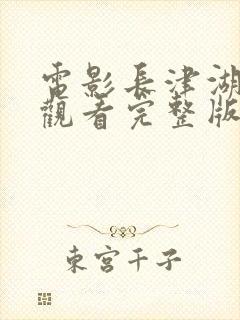 電影長津湖
觀看完整版
東宮千子